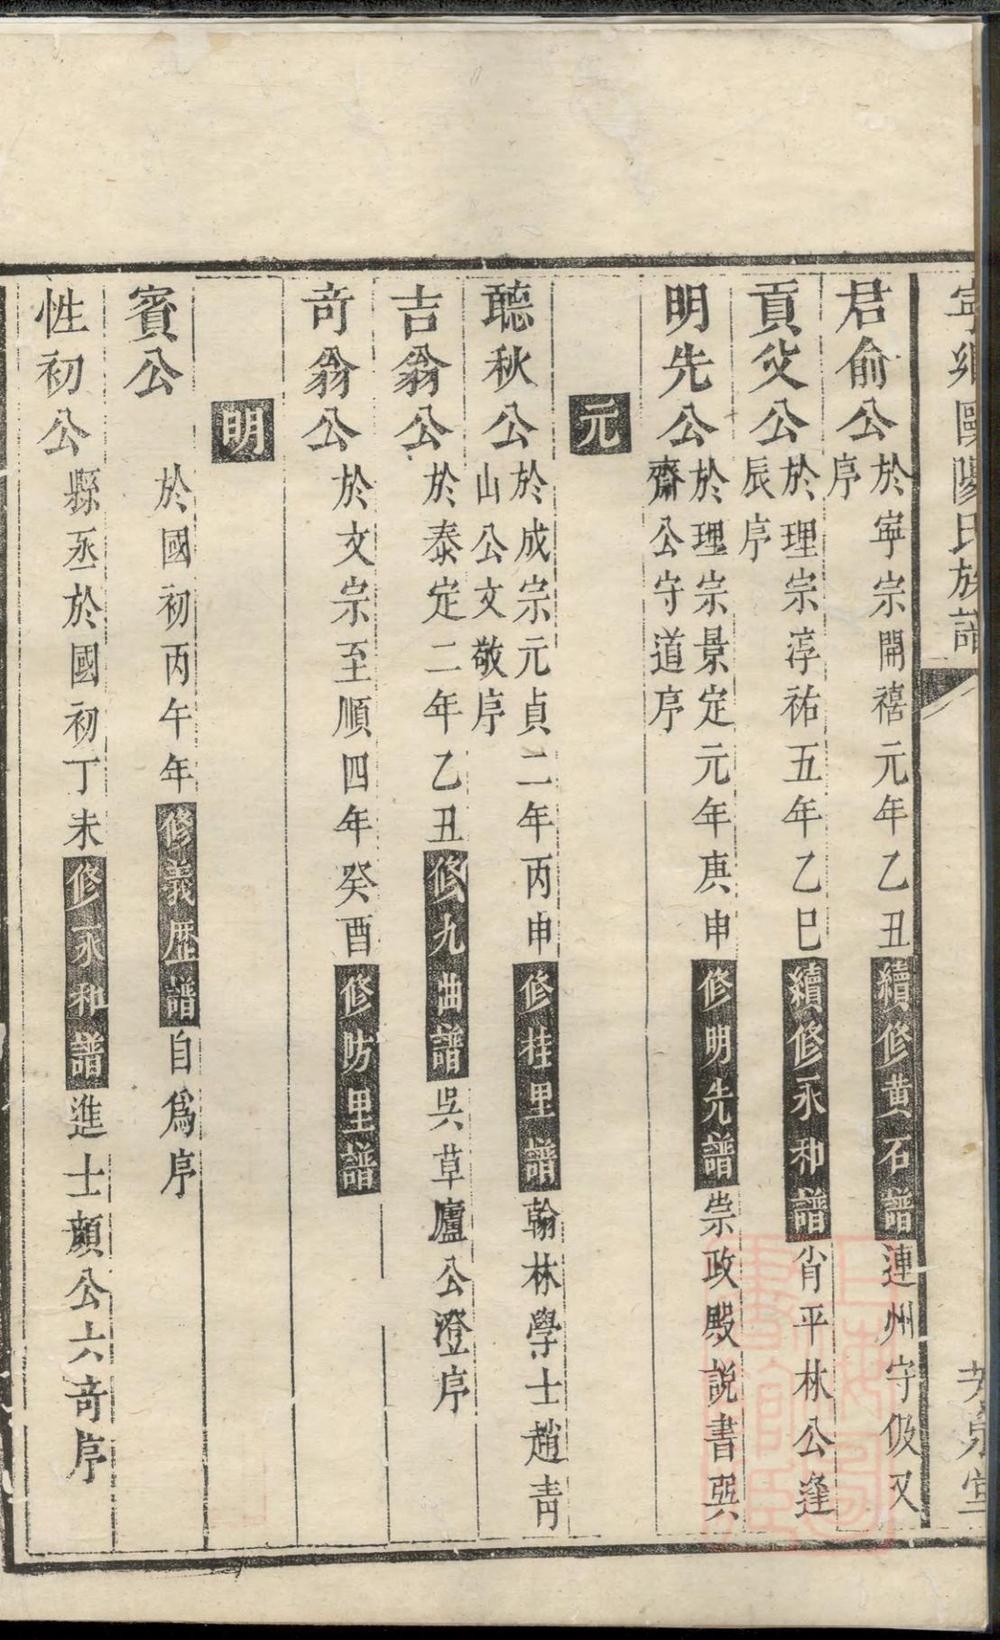 寧鄉歐陽氏族譜
君俞公於寧宗開禧元年乙丑續修黄石譜連州守伋又
序
貢父公於理宗淳祐五年乙巳續修永和譜省平林公逢
辰序
明先公於理宗景定元年庚申修明先譜崇政殿説書巽
齋公守道序
元
聽秋公於成宗元貞二年丙申修桂里譜翰林學士趙青
山公文敬序
吉翁公於泰定二年乙丑修九曲譜吳草廬公澄序
奇翁公於文宗至順四年癸酉修防里譜
明
賓公於國初丙午年修義歷譜自爲序
性初公縣丞於國初丁未修永和譜進士顏公六奇序